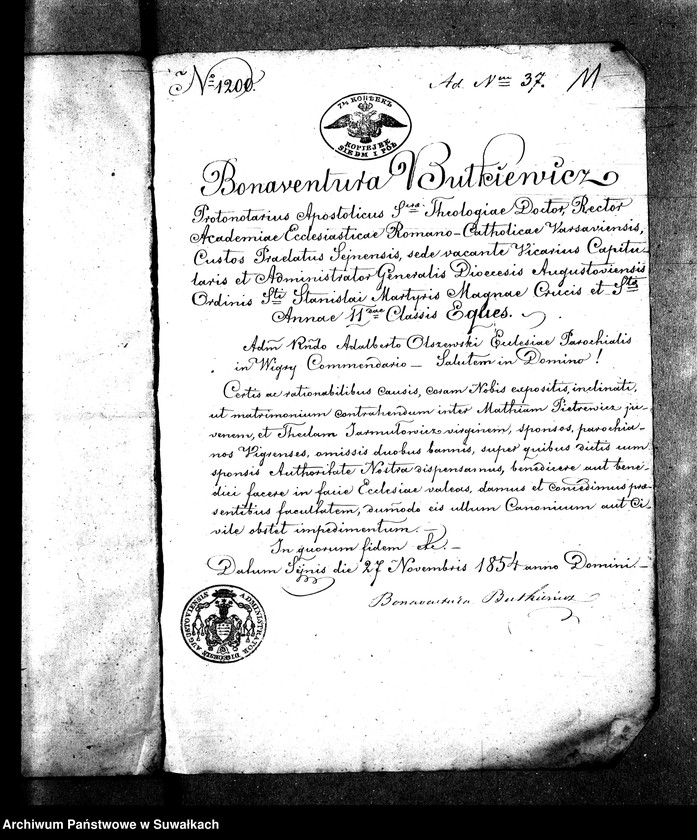 No 1200.
Ad Num 37. M
7½ КОПѢЕКЪ
KOPIEJEK
SIEDM I PÓŁ
Bonaventura Butkiewicz
Protonotarius Apostolicus Strae Theologiae Doctor, Rector
Academiae Ecclesiasticae Romano-Catholicae Varsaviensis,
Custos Praelatus Sejnensis, sede vacante Vicarius Capitu-
laris et Administrator Generalis Dioecesis Augustoviensis
Ordinis Sti Stanislai Martyris Magnae Crucis et Stae
Annae IIdae Classis Eques.
Adm Rndo Adalberto Olszewski Ecclesiae Parochialis
in Wigry Commendario – Salutem in Domino!
Certis ac rationabilibus causis, coram Nobis expositis, inclinati,
ut matrimonium contrahendum inter Mathiam Pietrewicz ju-
venem, et Theclam Jarmułowicz virginem, sponsos, parochia-
nos Vigrenses, omissis duobus bannis, super quibus dictis cum
sponsis Authoritate Nostra dispensamus, benedicere aut bene-
dici facere in facie Ecclesiae valeas, damus et concedimus prae-
sentibus facultatem, dummodo eis ullum Canonicum aut Ci-
vile obstet impedimentum. –
In quorum fidem etc. –
Datum Sejnis die 27 Novembris 1854 anno Domini. –
Bonaventura Butkiewicz
ADMINISTRATOR DIOECESIS AUGUSTOVIENSIS
Archiwum Państwowe w Suwałkach